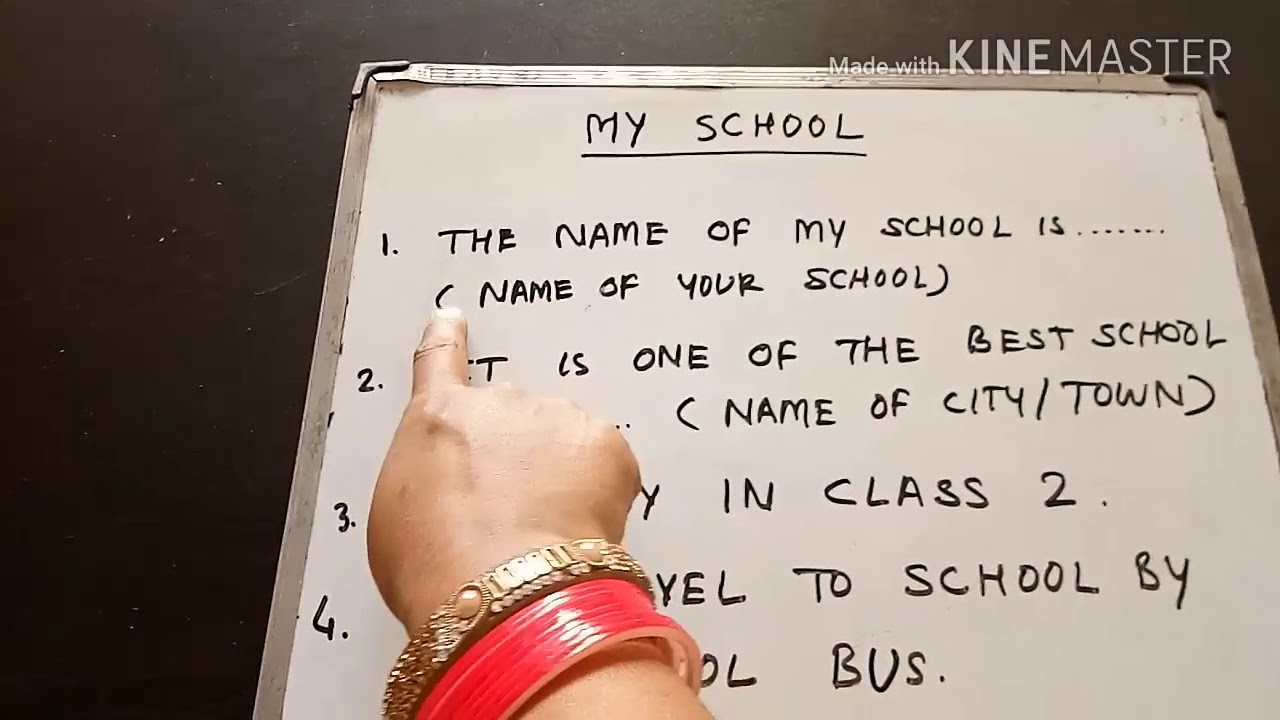 Made with KINEMASTER
MY SCHOOL
1. THE NAME OF MY SCHOOL IS.......
( NAME OF YOUR SCHOOL)
2. IS ONE OF THE BEST SCHOOL
.. ( NAME OF CITY/TOWN)
3. IN CLASS 2.
4. TO SCHOOL BY
BUS.